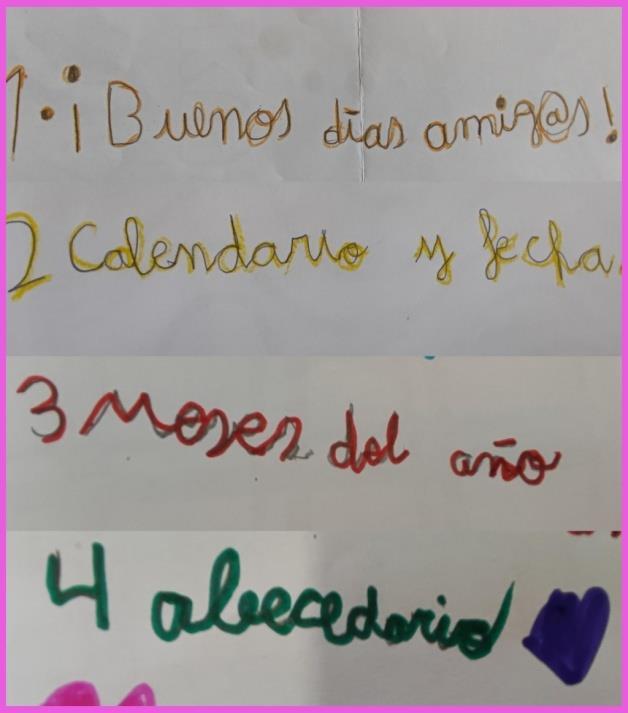 1.¡Buenos días amig@s!
2 Calendario y fecha.
3 Meses del año
4 abecedario